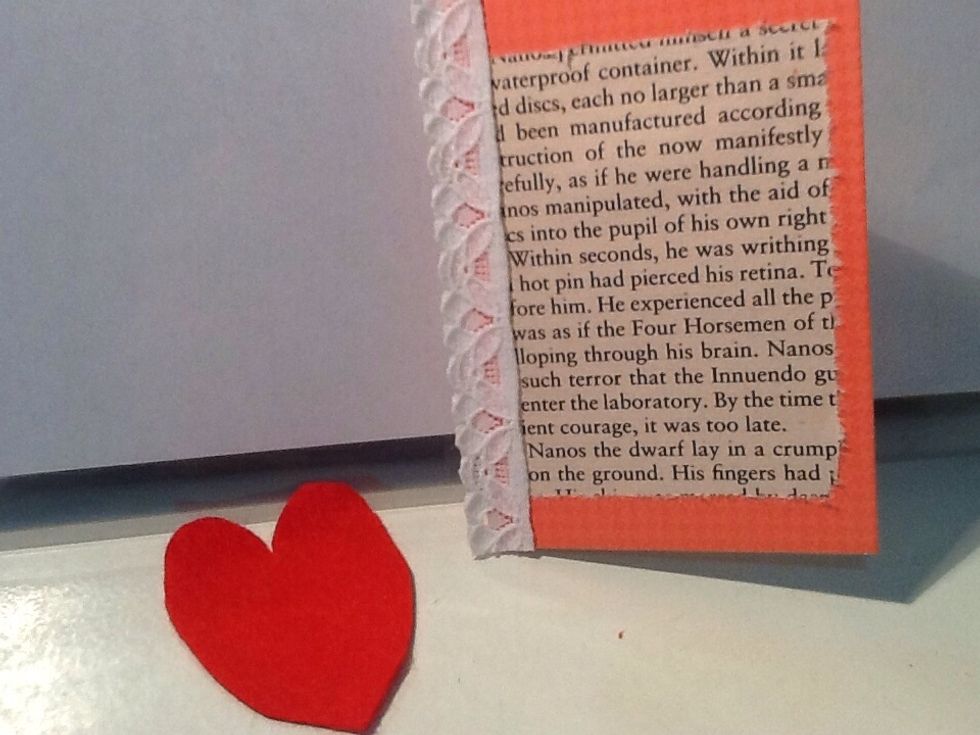 permitted himself a secret
waterproof container. Within it l
d discs, each no larger than a sma
d been manufactured according
truction of the now manifestly
efully, as if he were handling a
nos manipulated, with the aid of
cs into the pupil of his own right
Within seconds, he was writhing
hot pin had pierced his retina. To
fore him. He experienced all the p
was as if the Four Horsemen of th
lloping through his brain. Nanos
such terror that the Innuendo gu
enter the laboratory. By the time t
ient courage, it was too late.
Nanos the dwarf lay in a crump
on the ground. His fingers had